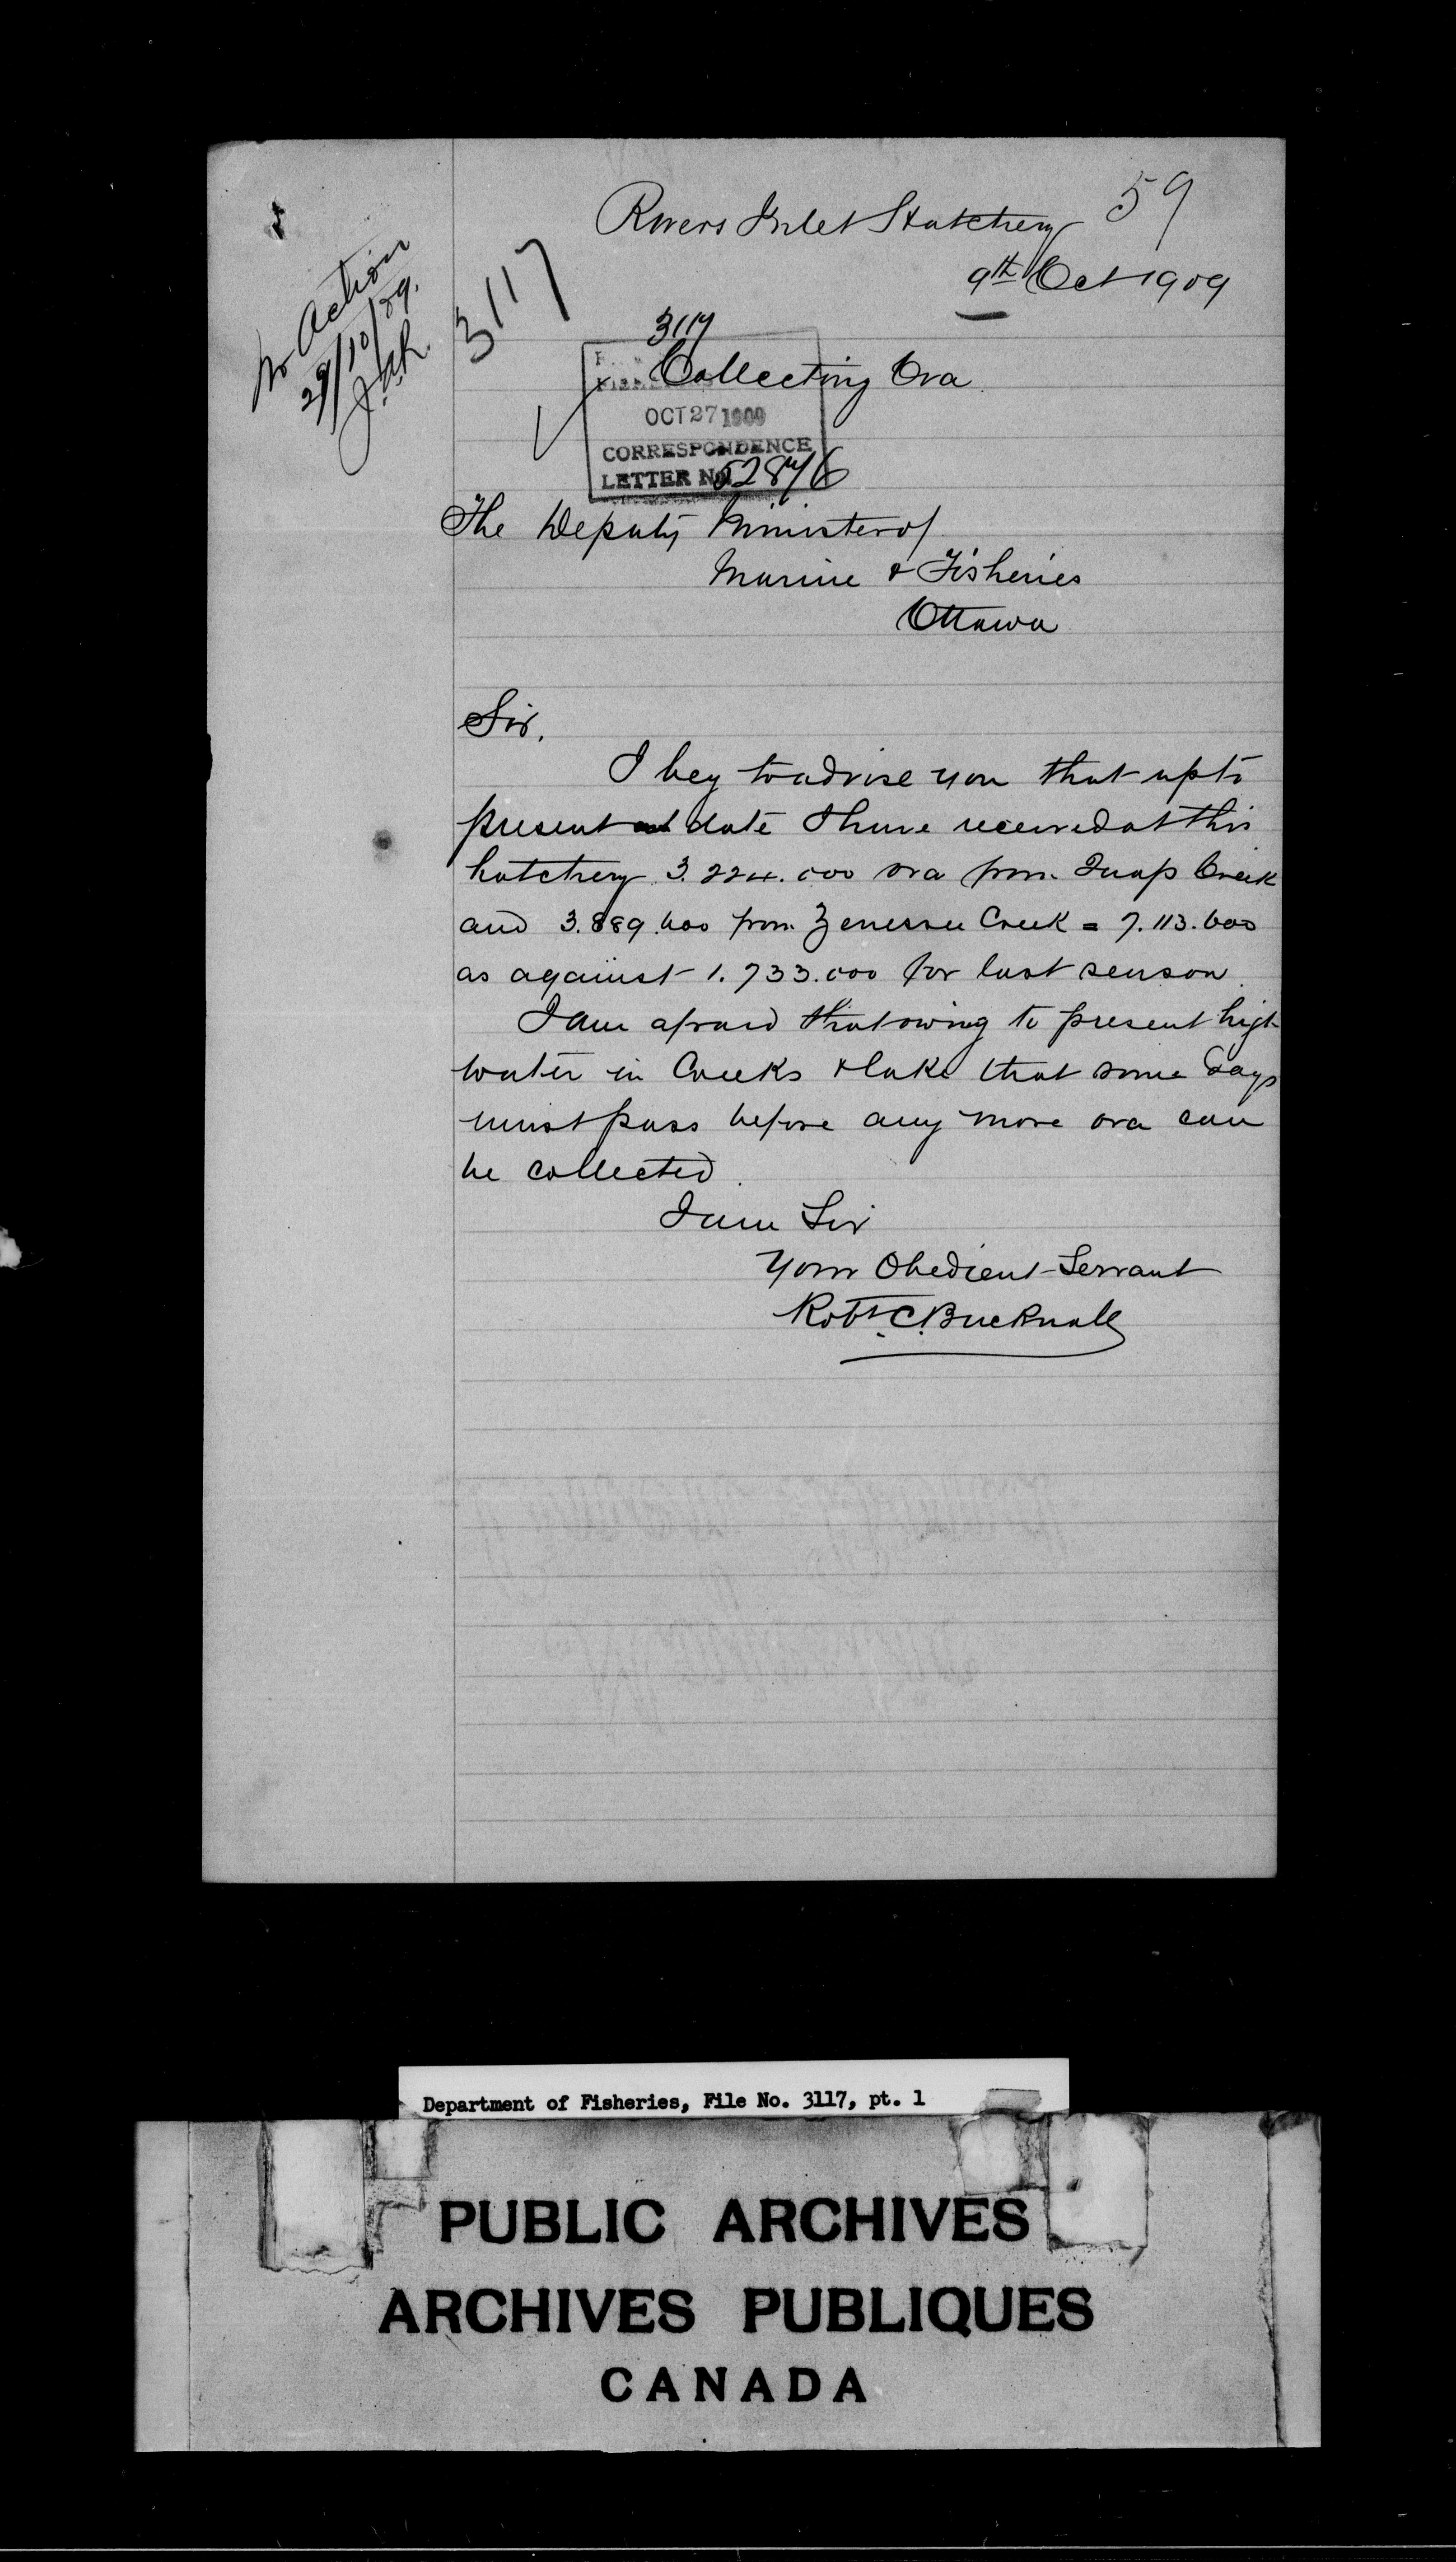 59
Rivers Inlet Hatchery
9th Oct 1909
No Action
29/10/09.
3117
3117
Collecting Ova
OCT 27 1909
CORRESPONDENCE
LETTER No 52876
The Deputy Minister of
Marine & Fisheries
Ottawa
Sir,
I beg to advise you that up to
present date I have received at this
hatchery 3.224.000 ova from Quap Creek
and 3.889.600 from Genessee Creek = 7.113.600
as against 1.733.000 for last season.
I am afraid that owing to present high
water in Creeks & lake that some days
must pass before any more ova can
be collected.
I am Sir
Your Obedient Servant
Robt. C. Bucknall
Department of Fisheries, File No. 3117, pt. 1
PUBLIC ARCHIVES
ARCHIVES PUBLIQUES
CANADA